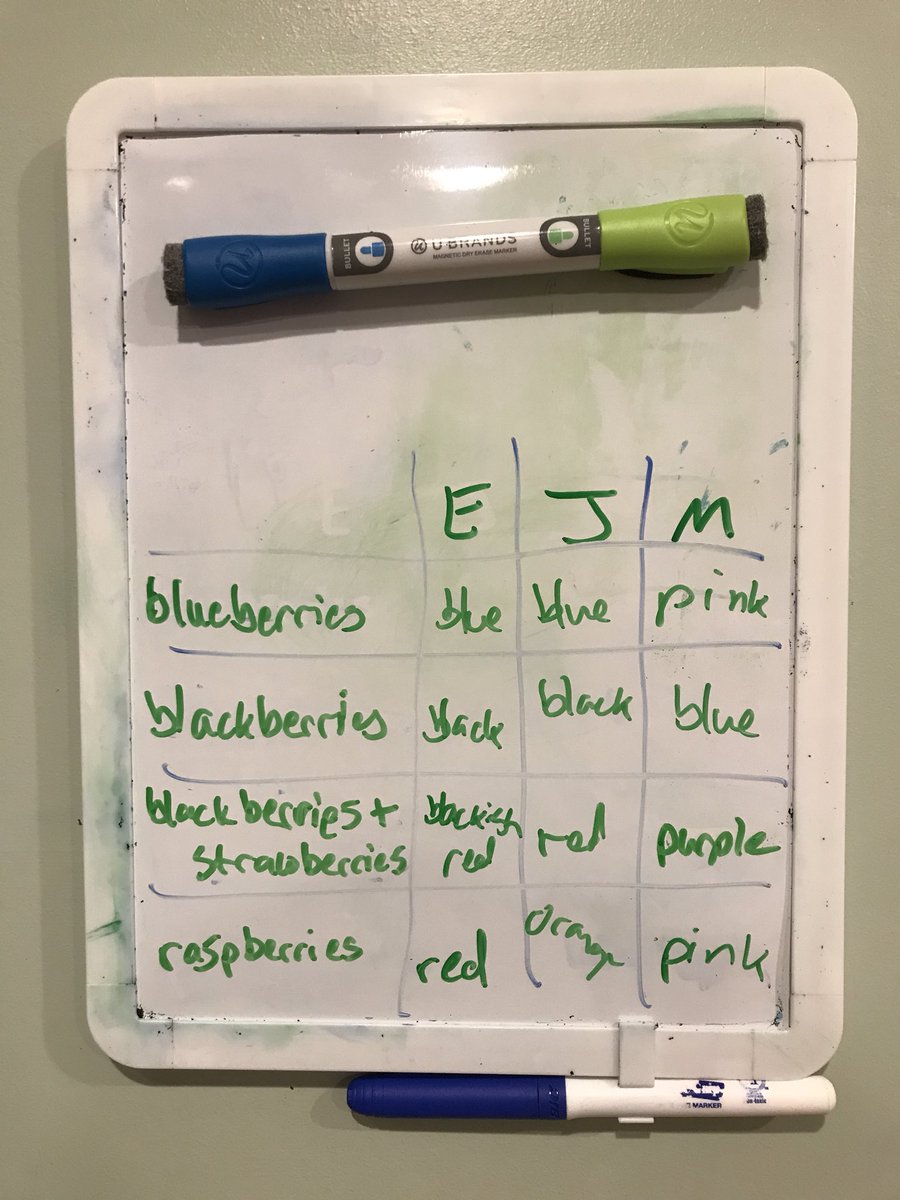 BULLET
U BRANDS
MAGNETIC DRY ERASE MARKER
BULLET
E J M
blueberries blue blue pink
blackberries black black blue
blackberries + blackish red purple
strawberries red
raspberries red orange pink
MARKER